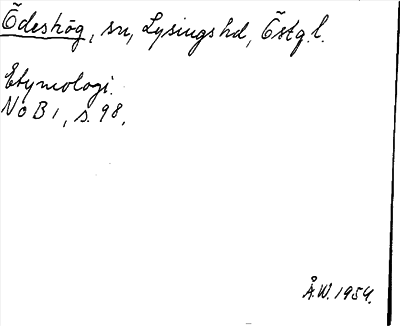 Ödeshög, sn, Lysings hd, Östg.l.
Etymologi.
NoB 1, s. 98.
Å.W. 1954.